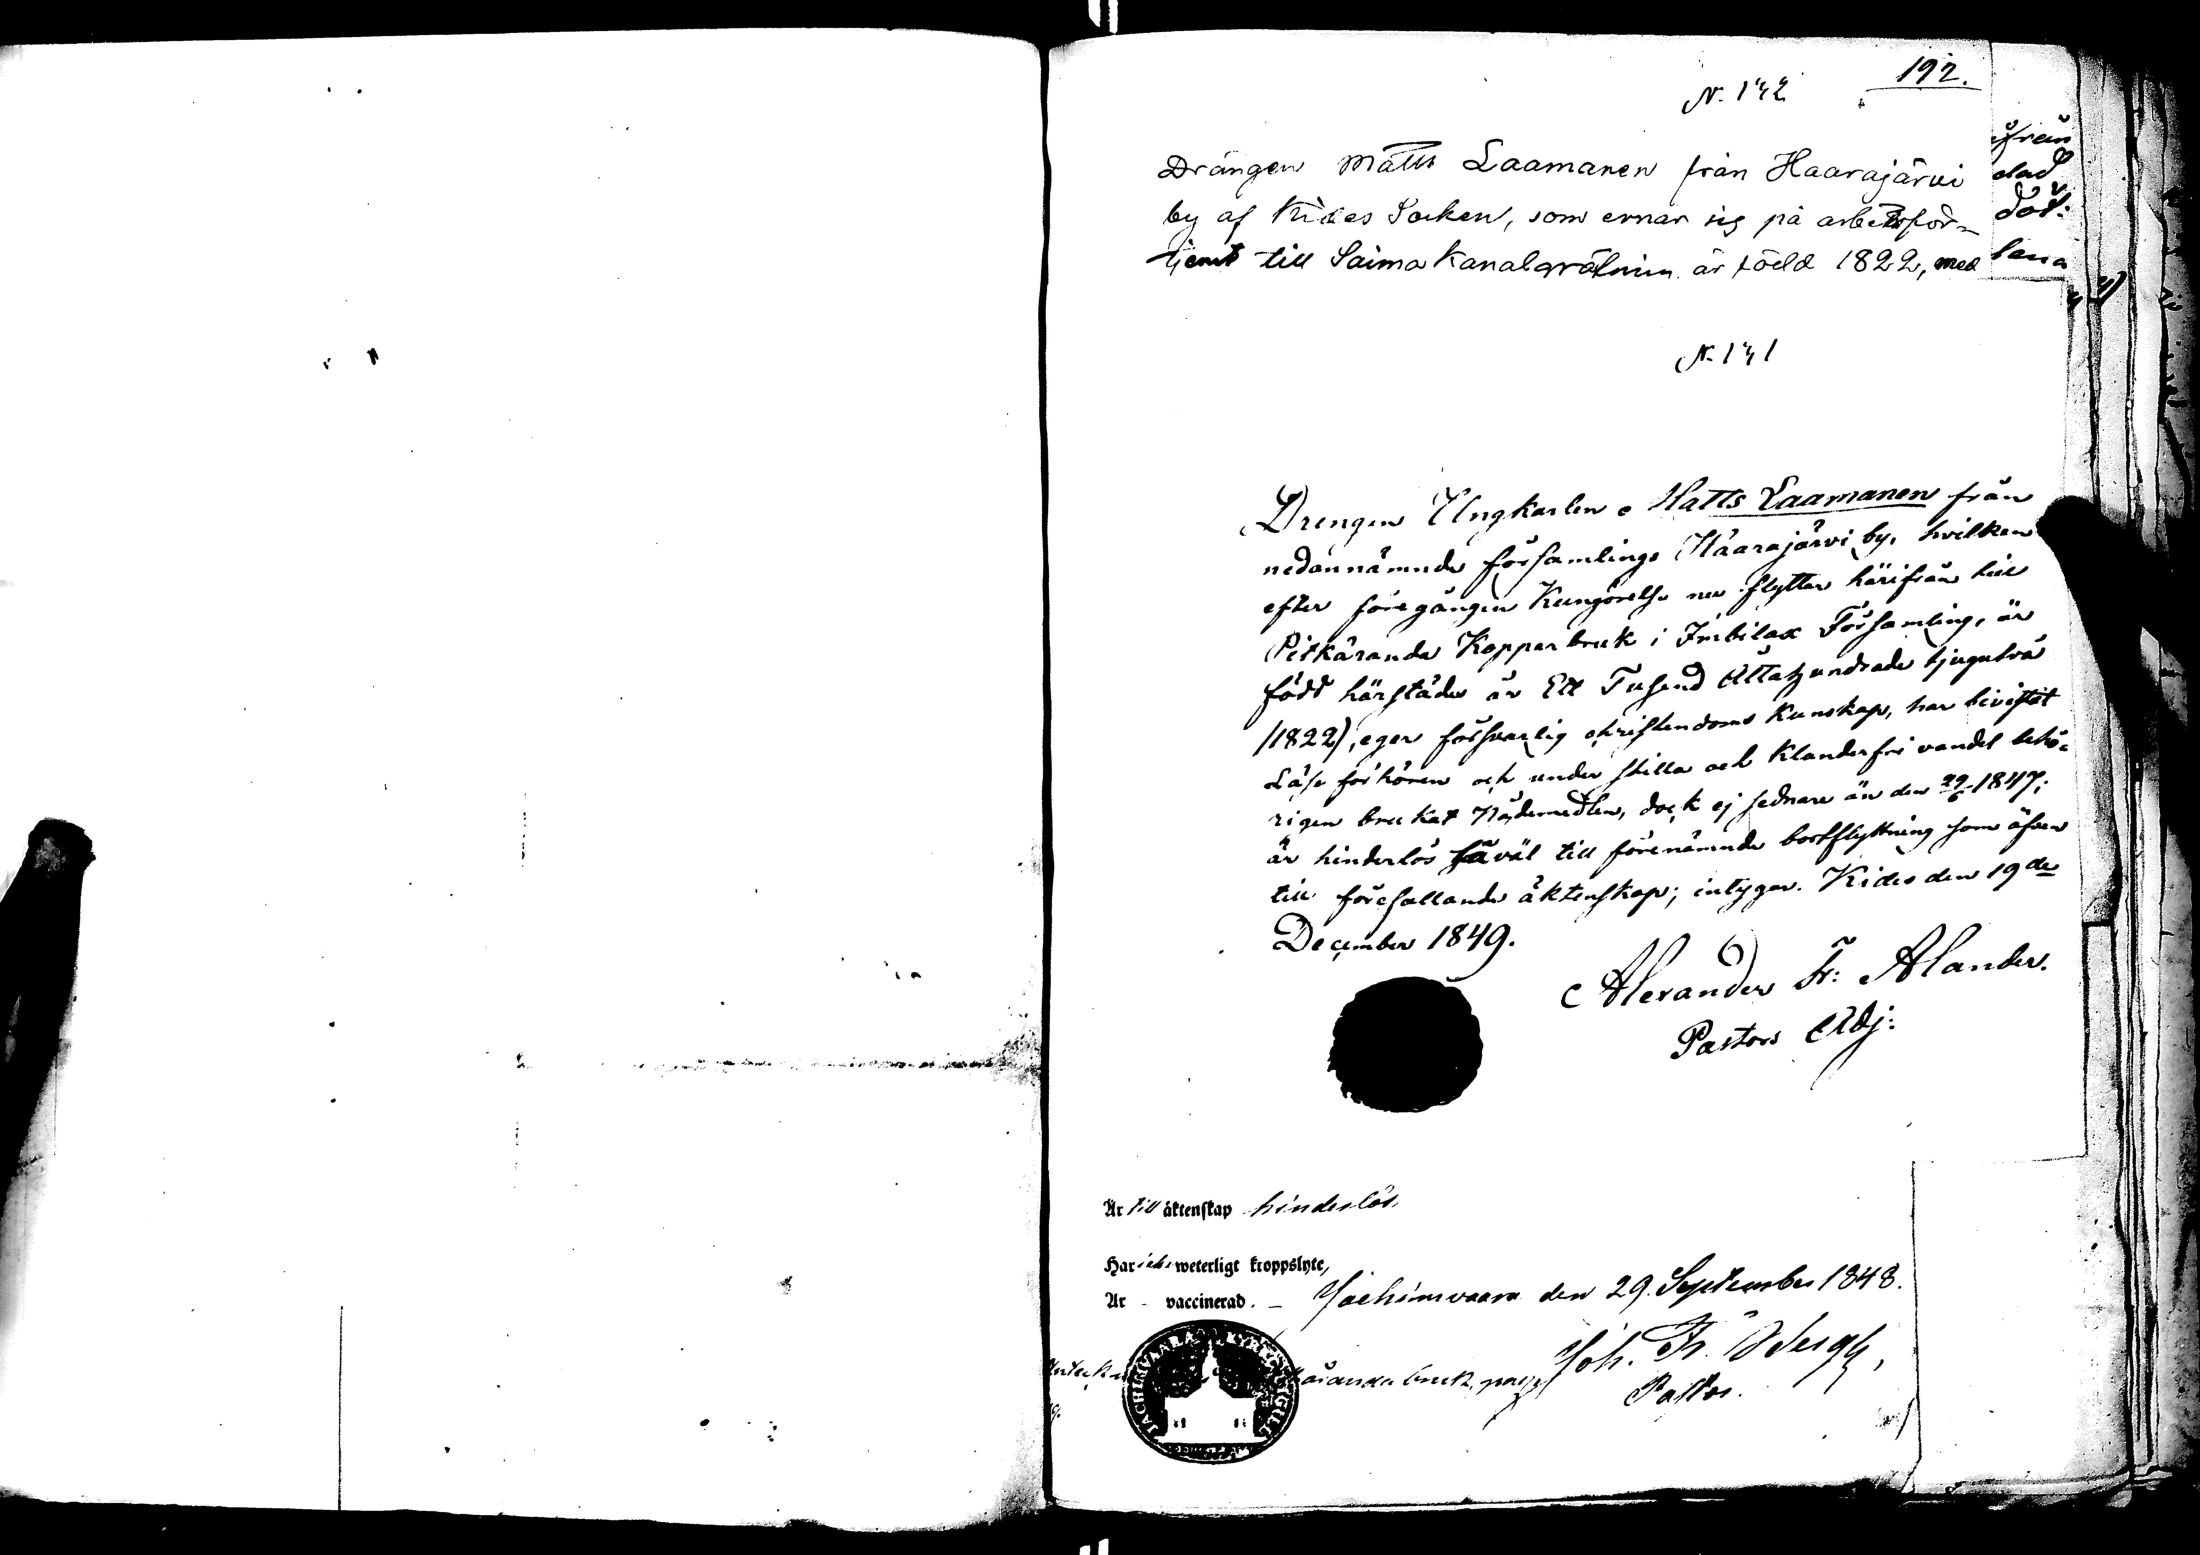 192.
N. 142
Drängen Matts Laamanen från Haarajärvi
by af Kides Socken, som ernar sig på arbetsför-
tjenst till Saima Kanalgräfning är född 1822, med
från
dad
döt:
N. 141
Drengen Ungkarlen Matts Laamanen från
nedannämnde församlings Haarajärvi by, hvilken
efter föregången Kungörelse nu flyttar härifrån till
Pitkäranda Kopparbruk i Imbilax Församling, är
född härstädes år Ett Tusend Åttahundrade tjugutvå
(1822), eger försvarlig christendoms Kunskap, har bivistat
Läseförhören och under stilla och klanderfri vandel behö-
rigen brukat Nådemedlen, dock ej sednare än den 29/6 1847;
är hinderlös såväl till förenämnde bortflyttning som äfven
till förefallande äktenskap; intygar. Kides den 19de
December 1849.
Alexander Fr: Alander.
Pastors Adj:
Är till äktenskap hinderlös.
Har icke weterligt kroppslyte,
Är - vaccinerad. - Jachimvaara den 29. September 1848.
Joh. Fr.
Pastor.